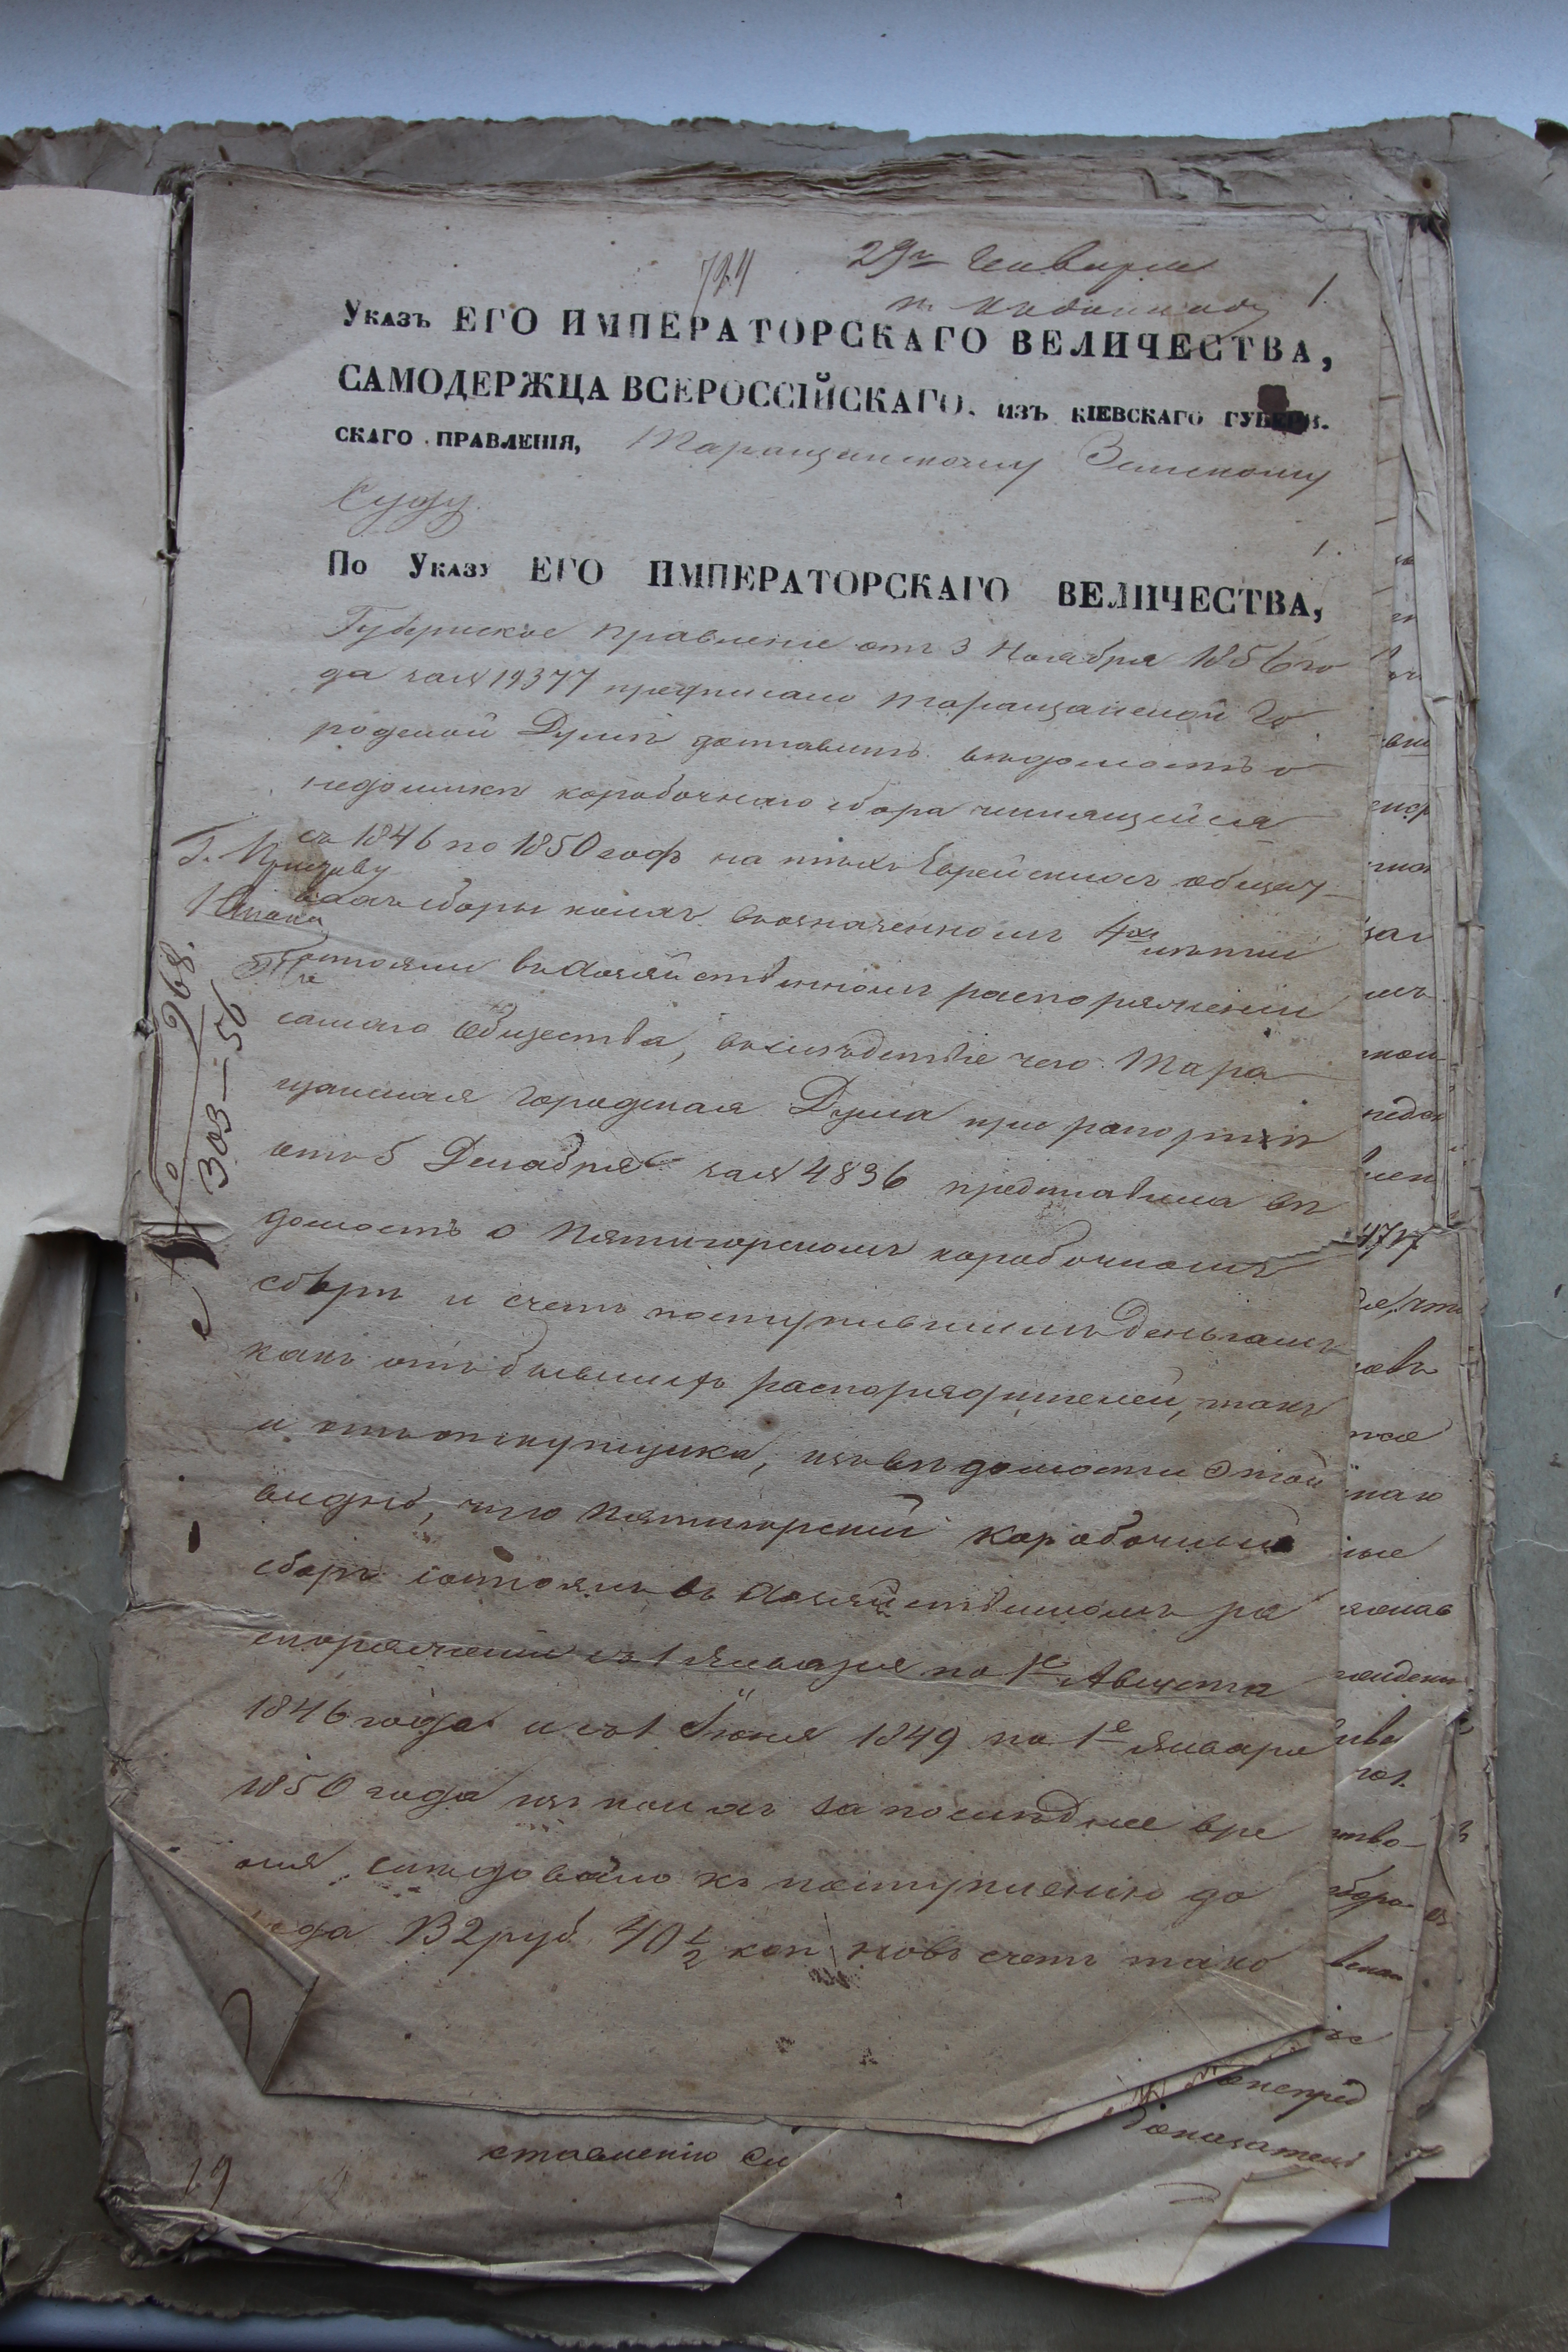 724
29го Генваря
1.
Указъ ЕГО ИМПЕРАТОРСКАГО ВЕЛИЧЕСТВА,
САМОДЕРЖЦА ВСЕРОССІЙСКАГО, изъ КІЕВСКАГО ГУБЕРН-
СКАГО ПРАВЛЕНІЯ, Таращанскому Земскому
Суду.
1.
По Указу ЕГО ИМПЕРАТОРСКАГО ВЕЛИЧЕСТВА,
Губернское Правленіе отъ 3 Ноября 1856 го
да за № 19377 предписало Таращанской Го
родской Думѣ доставить вѣдомость о
недоимкѣ коробочнаго сбора числящейся
съ 1846 по 1850 годъ на тѣхъ Еврейскихъ общест
вахъ сборы коихъ въ означенномъ 4хъ лѣтіи
состояли въ хозяйственномъ распоряженіи
самаго Общества, вслѣдствіе чего Тара
щанская Городская Дума при рапортѣ
отъ 5 Декабря за № 4836 представила вѣ
домость о Пятигорскомъ коробочномъ
сборѣ и счетъ поступившимъ деньгамъ
какъ отъ бывшихъ распорядителей, такъ
и отъ откупщика, изъ вѣдомости этой
видно, что Пятигорскій коробочный
сборъ состоялъ въ хозяйственномъ ра
споряженіи съ 1 Января по 1е Августа
1846 года и съ 1 Іюня 1849 по 1е Января
1850 года изъ коихъ за послѣднее вре
мя слѣдовало къ поступленію до
хода 132 руб. 40 1/2 коп но въ счетъ тако
Г. Приставу
1 Стана
№ 968.
303—56
ставленію
19